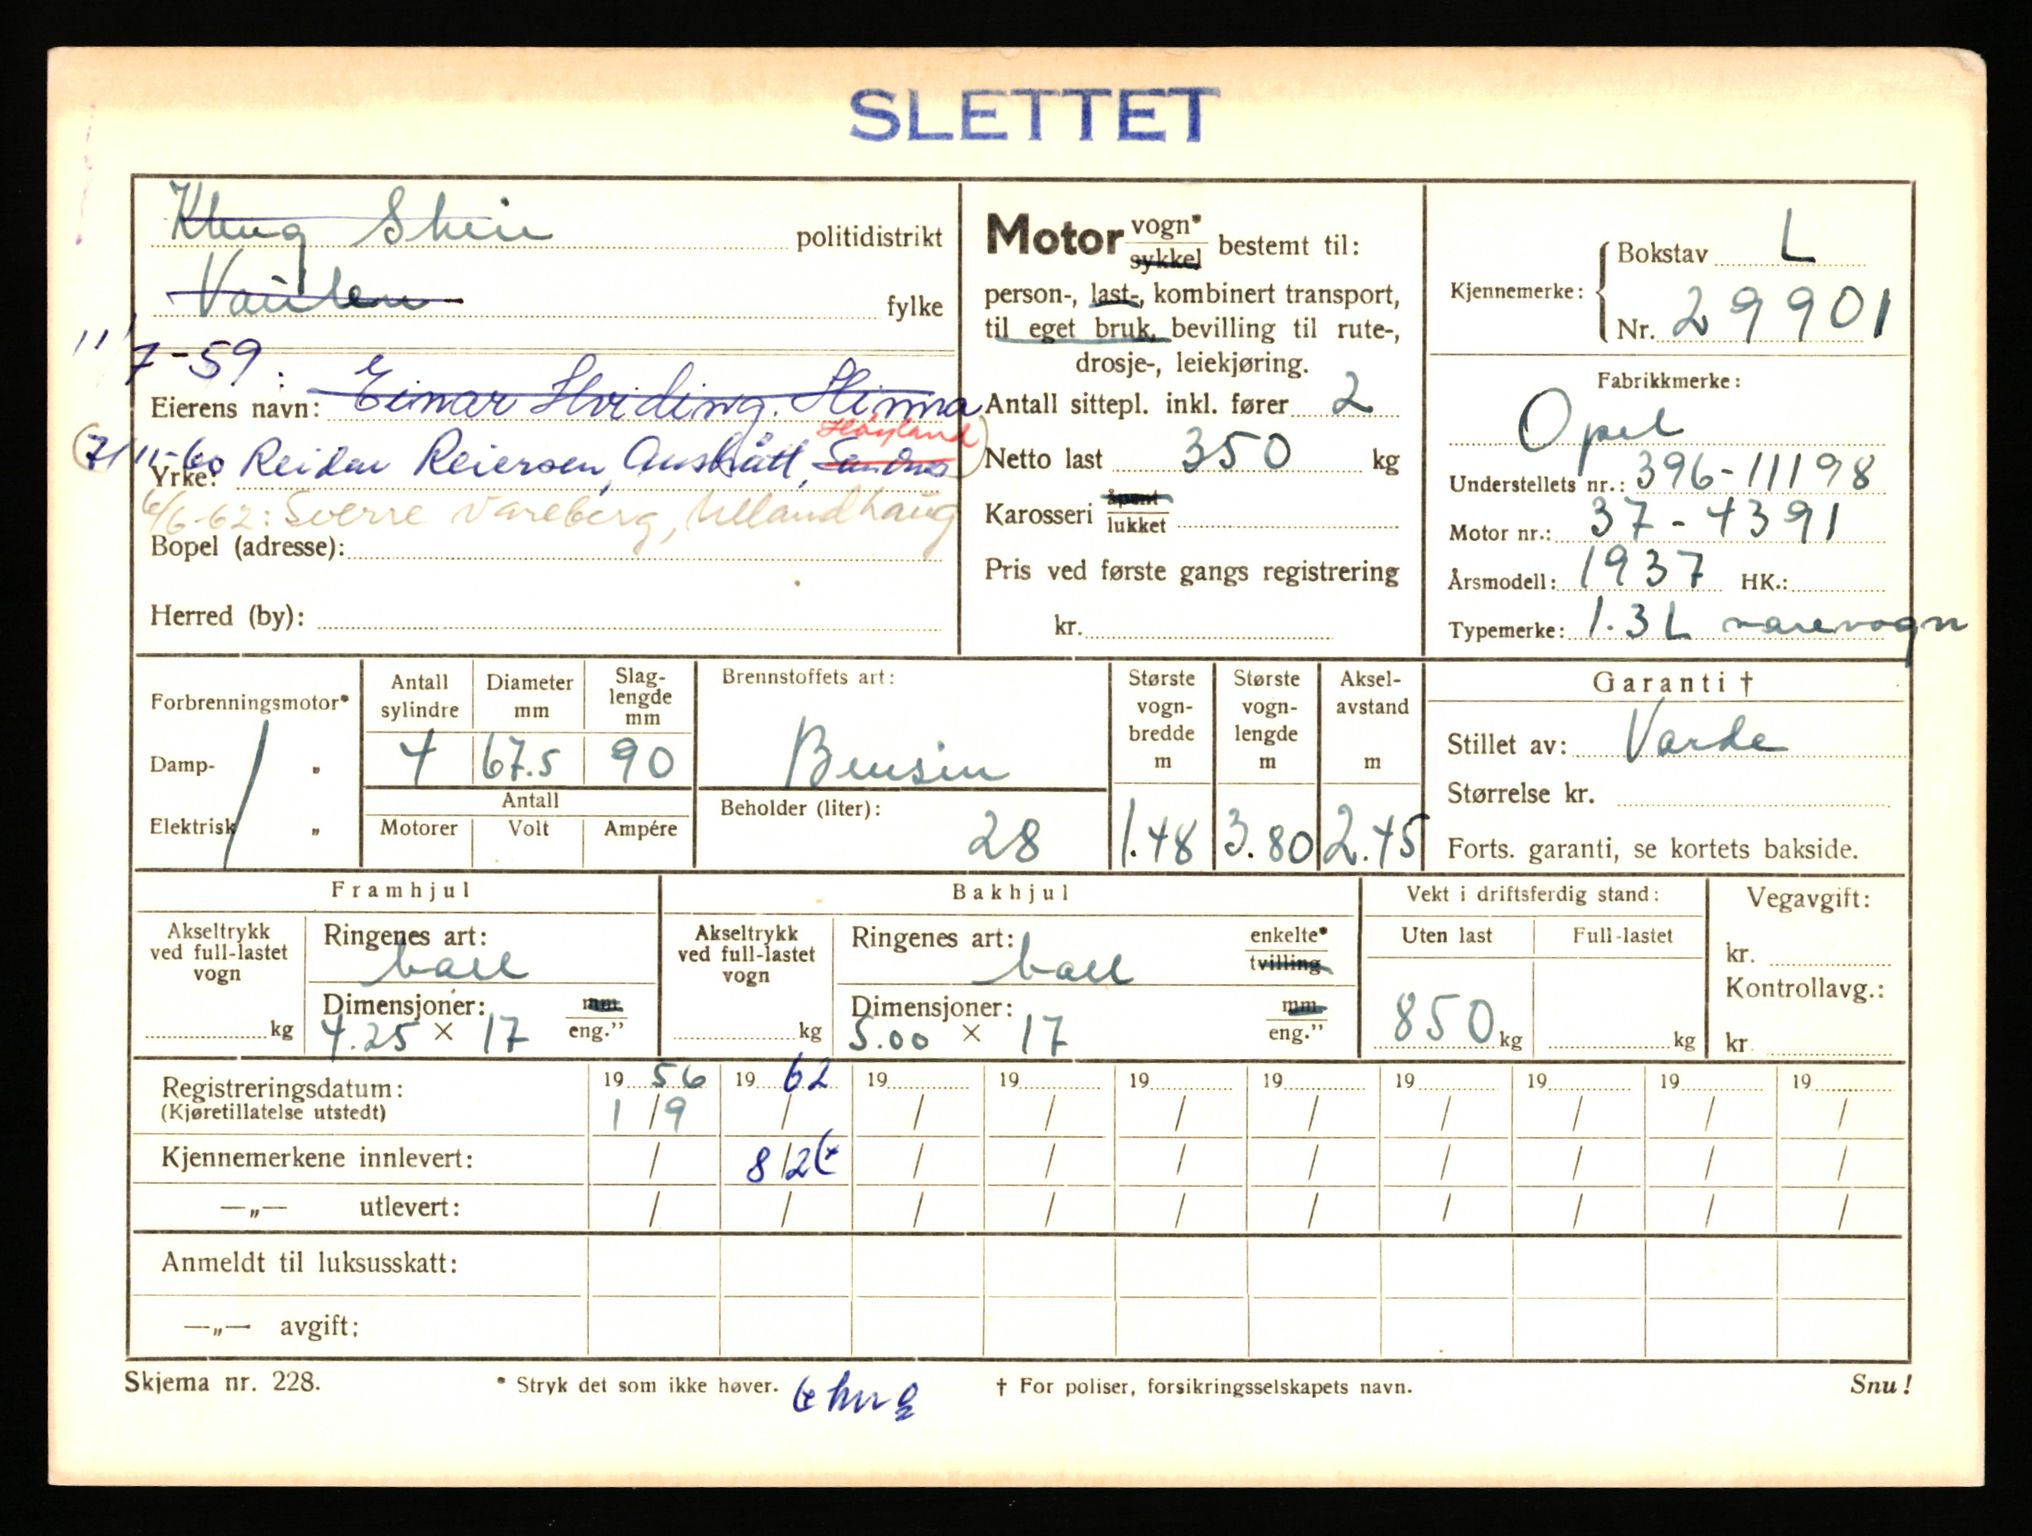 SLETTET
politidistrikt
fylke
11/7-59:
Eierens navn: Einar Hviding. Hinna
Høyland
7/11-60 Reidar Reiersen, Austrått, Sandnes
Yrke:
6/6-62: Sverre Vareberg, Ullandhaug
Bopel (adresse):
Herred (by):
Motor vogn* sykkel bestemt til:
person-, last-, kombinert transport,
til eget bruk, bevilling til rute-,
drosje-, leiekjøring.
Antall sittepl. inkl. fører 2
Netto last 350 kg
Karosseri åpent lukket
Pris ved første gangs registrering
kr.
Kjennemerke: Bokstav L
Nr. 29901
Fabrikkmerke:
Opel
Understellets nr.: 396-11198
Motor nr.: 37-4391
Årsmodell: 1937 HK.:
Typemerke: 1.3 L varevogn
Forbrenningsmotor*
Damp- "
Elektrisk "
Antall sylindre Diameter mm Slag-lengde mm
4 67.5 90
Antall
Motorer Volt Ampére
Brennstoffets art:
Bensin
Beholder (liter):
28
Største vogn-bredde m
1.48
Største vogn-lengde m
3.80
Aksel-avstand m
2.45
Garanti †
Stillet av: Varde
Størrelse kr.
Forts. garanti, se kortets bakside.
Framhjul
Akseltrykk ved full-lastet vogn
kg
Ringenes art:
ball
Dimensjoner: mm
4.25 × 17 eng."
Bakhjul
Akseltrykk ved full-lastet vogn
kg
Ringenes art: enkelte*
ball tvilling
Dimensjoner: mm
5.00 × 17 eng."
Vekt i driftsferdig stand:
Uten last Full-lastet
850 kg kg
Vegavgift:
kr.
Kontrollavg.:
kr.
Registreringsdatum: 19 56 19 62 19 19 19 19 19 19 19 19
(Kjøretillatelse utstedt) 1/9 / / / / / / / / /
Kjennemerkene innlevert: / 8/2 / / / / / / / /
—„— utlevert: / / / / / / / / / /
Anmeldt til luksusskatt:
—„— avgift:
Skjema nr. 228. * Stryk det som ikke høver. † For poliser, forsikringsselskapets navn. Snu!